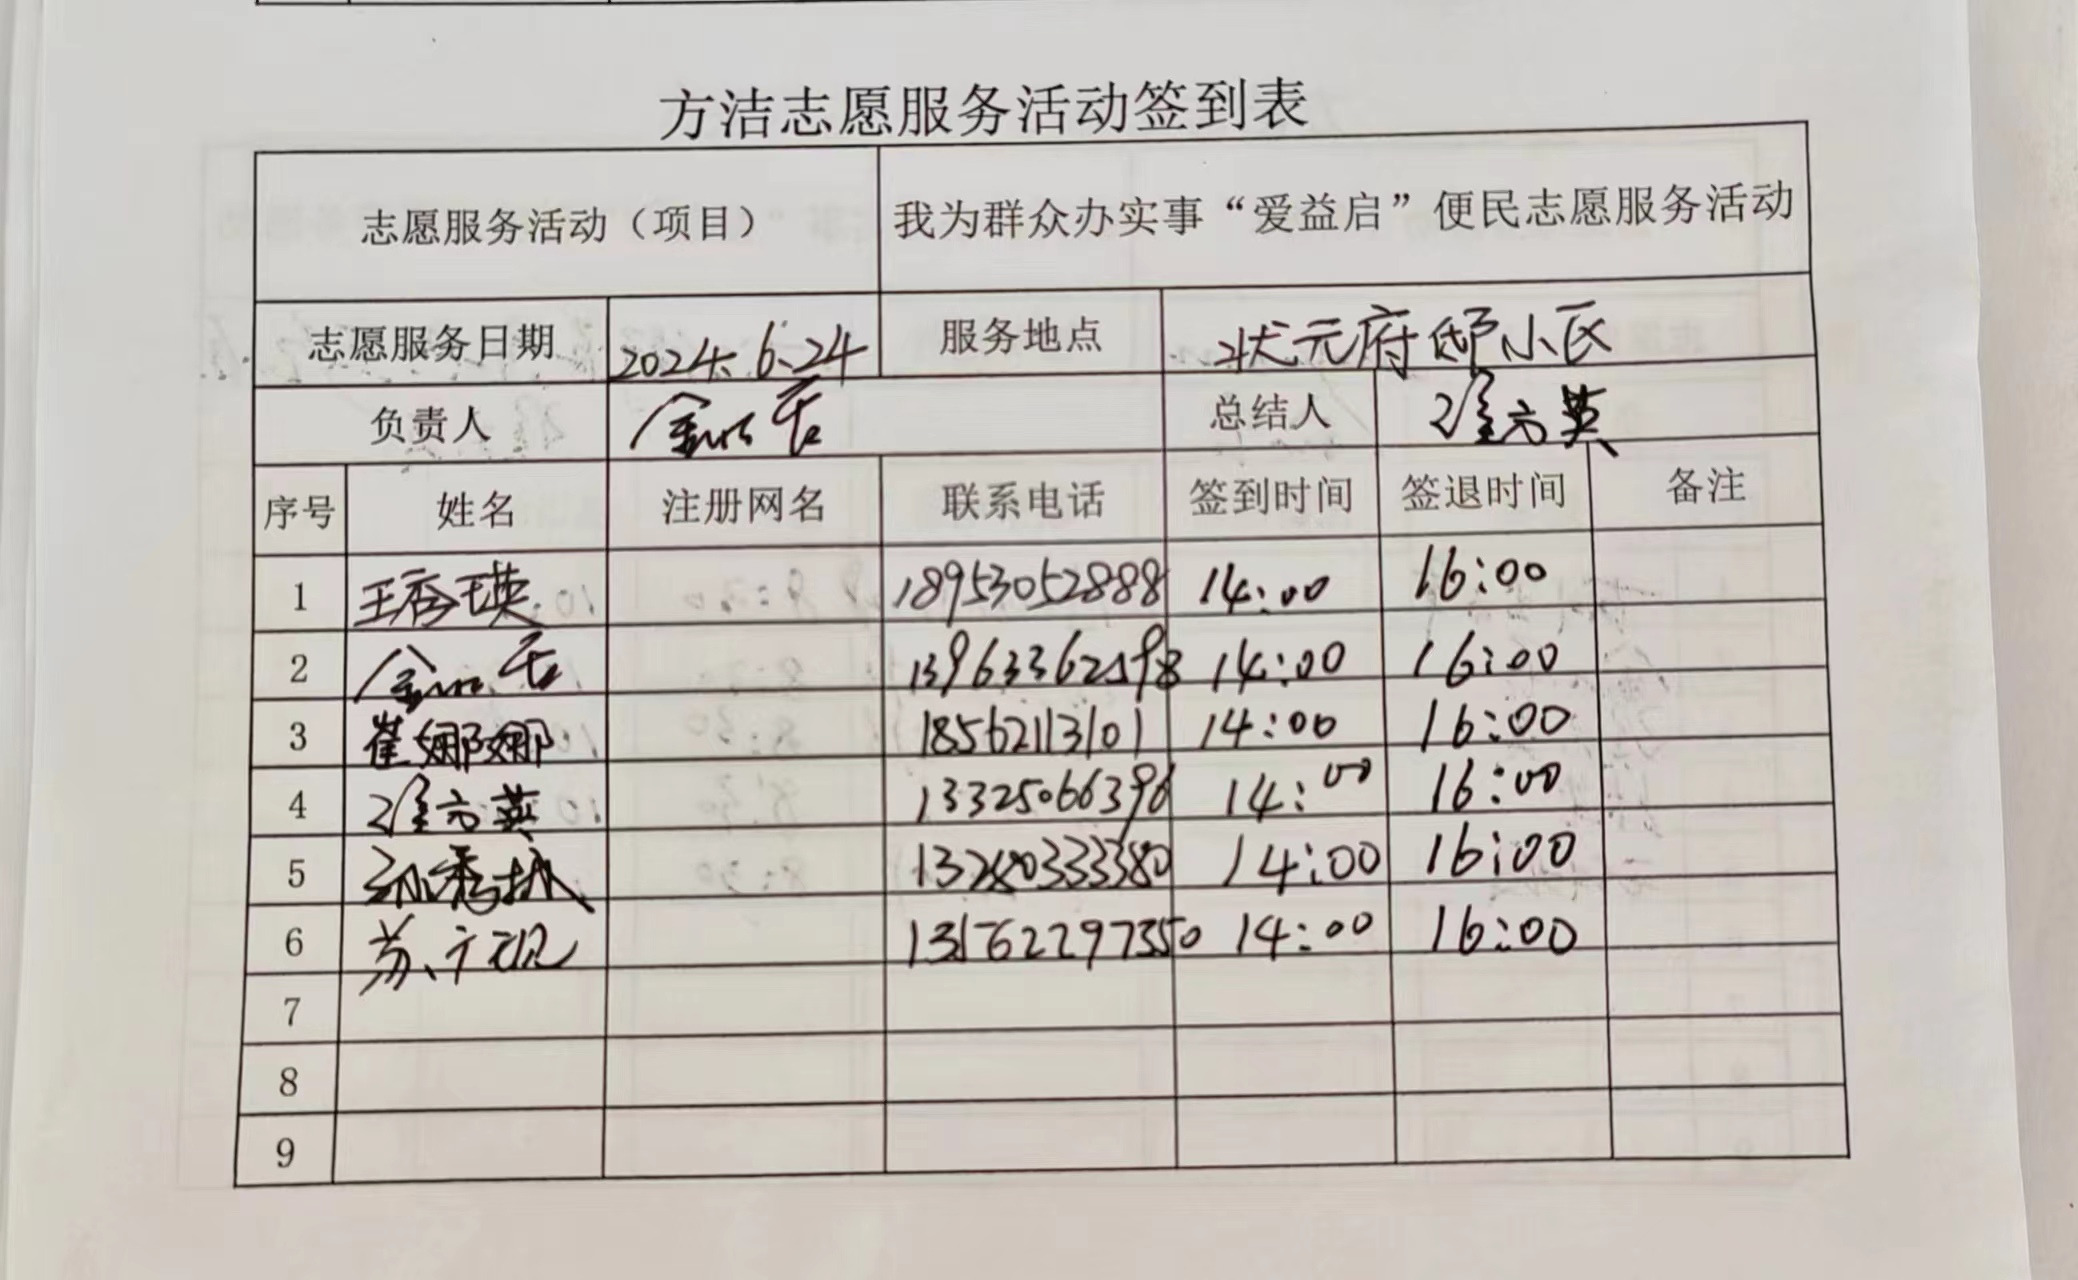 方洁志愿服务活动签到表
志愿服务活动（项目） 我为群众办实事“爱益启”便民志愿服务活动
志愿服务日期 2024.6.24 服务地点 状元府邸小区
负责人 总结人
序号 姓名 注册网名 联系电话 签到时间 签退时间 备注
1 18953052888 14:00 16:00
2 14:00 16:00
3 崔娜娜 18562113101 14:00 16:00
4 13325066396 14:00 16:00
5 13280333380 14:00 16:00
6 131762297350 14:00 16:00
7
8
9